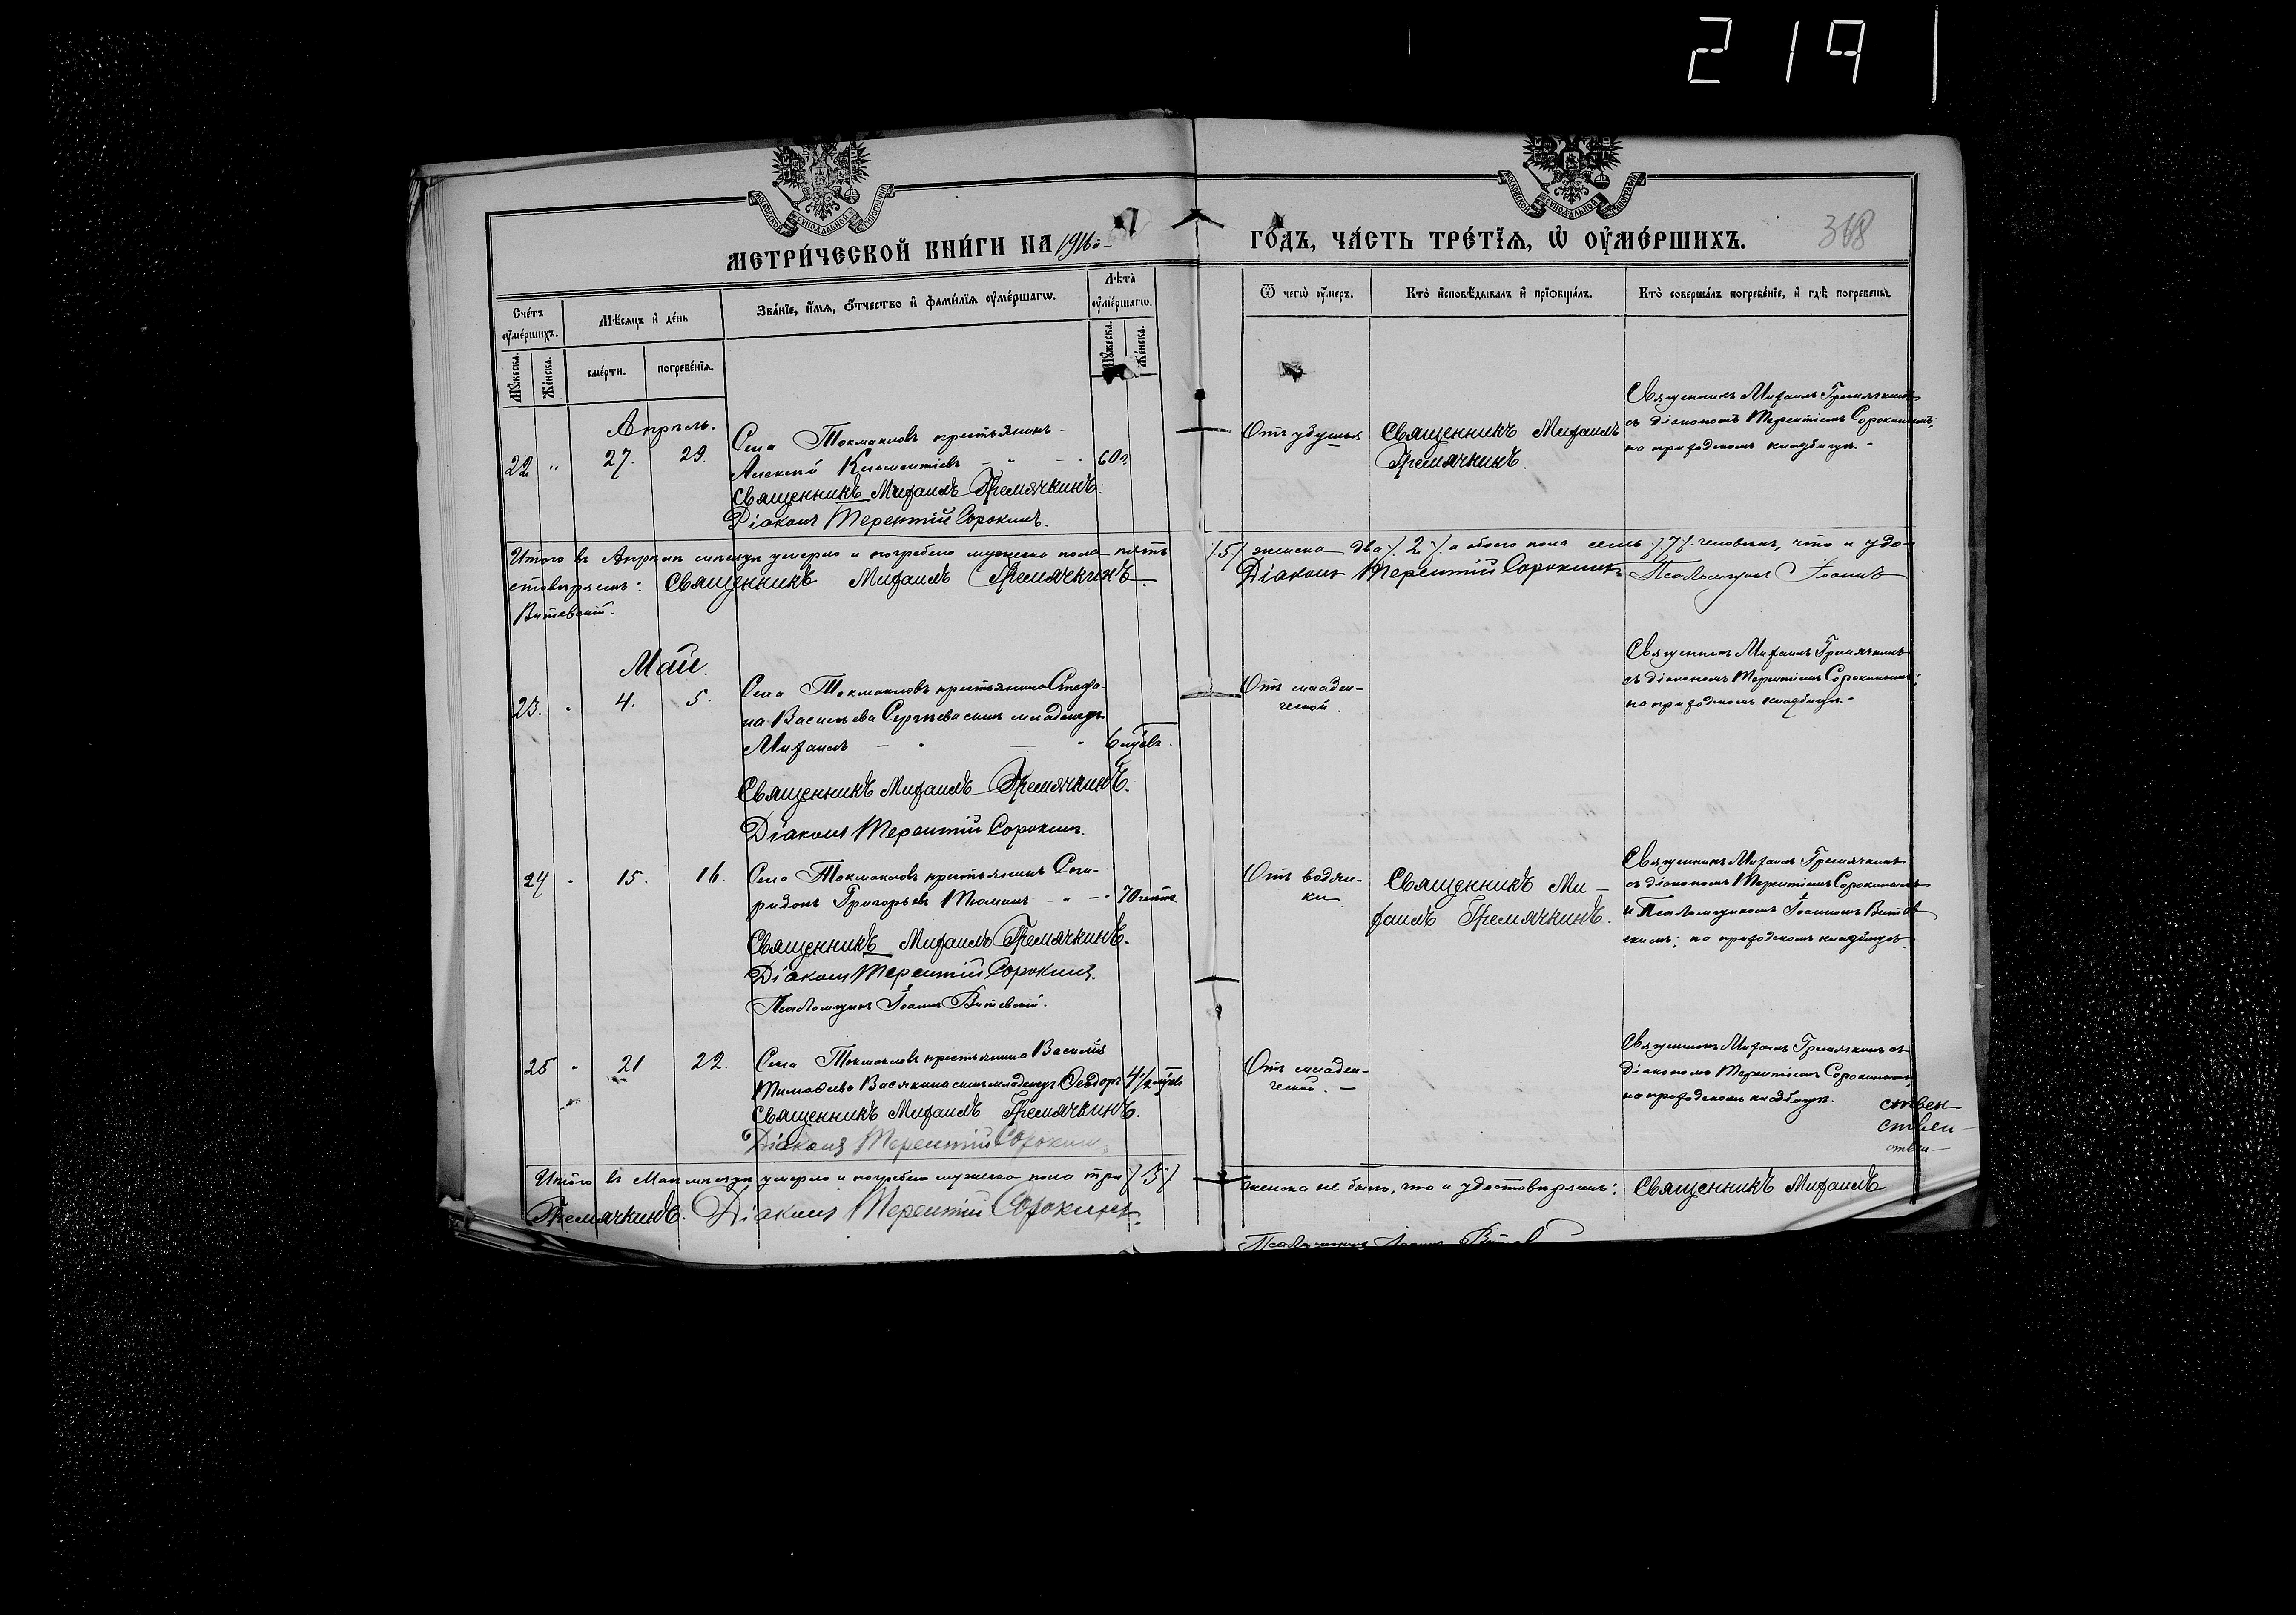 219
МЕТРИ́ЧЕСКОЙ КНИ́ГИ НА 1916й
ГО́ДЪ, ЧА́СТЬ ТРЕ́ТЇѦ, Ѡ҆ ОУ҆МЕ́РШИХЪ.
368
Сче́тъ оу҆ме́ршихъ.
Мꙋ́жеска.
Же́нска.
Мѣ́сяцъ и҆ де́нь
сме́рти.
погребе́нїѧ.
Зва́нїе, и҆́мѧ, ѻ҆́тчество и҆ фами́лїѧ оу҆ме́ршагѡ.
Лѣ́та̀ оу҆ме́ршагѡ.
Мꙋ́жеска.
Же́нска.
Ѿ чегѡ̀ оу҆́меръ.
Кто̀ и҆сповѣ́дывалъ и҆ прїѡбща́лъ.
Кто̀ соверша́лъ погребе́нїе, и҆ гдѣ̀ погребены̀.
Апрѣль.
22 " 27. 29.
Села Токмаклов крестьянинъ
Алексей Климентіевъ
60 л.
Священникъ Михаилъ Гремячкинъ.
Діаконъ Терентій Сорокинъ.
Отъ удушья
Священникъ Михаилъ
Гремячкинъ.
Священникъ Михаилъ Гремячкинъ
съ діакономъ Терентіемъ Сорокинымъ;
на приходскомъ кладбищѣ.
Итого въ Апрѣлѣ мѣсяцѣ умерло и погребено мужеска пола пять /5/ женска два /.2./. а обоего пола семь /.7./. человѣкъ, что и удо-
стовѣряемъ: Священникъ Михаилъ Гремячкинъ. Діаконъ Терентій Сорокинъ Псаломщикъ Іоаннъ
Витевскій.
Май.
23. " 4. 5.
Села Токмаклов крестьянина Стефа-
на Васильева Сергѣева сынъ младенецъ
Михаилъ
6 мѣсяц.
Священникъ Михаилъ Гремячкинъ.
Діаконъ Терентій Сорокинъ.
Отъ младен-
ческой.
Священникъ Михаилъ Гремячкинъ
съ діакономъ Терентіемъ Сорокинымъ;
на приходскомъ кладбищѣ.
24 " 15. 16.
Села Токмаклов крестьянинъ Спи-
ридонъ Григорьевъ
70 лѣтъ
Священникъ Михаилъ Гремячкинъ.
Діаконъ Терентій Сорокинъ.
Псаломщикъ Іоаннъ Витевскій.
Отъ водян-
ки
Священникъ Ми-
хаилъ Гремячкинъ.
Священникъ Михаилъ Гремячкинъ
съ діакономъ Терентіемъ Сорокинымъ
и Псаломщикомъ Іоанномъ Витев
скимъ; на приходскомъ кладбищѣ.
25 " 21 22.
Села Токмаклов крестьянина Василія
Тимоѳеева Васякина сынъ младенецъ Ѳеодоръ
4 1/2 мѣсяц
Священникъ Михаилъ Гремячкинъ.
Діаконъ Терентій Сорокинъ.
Отъ младен-
ческой. —
Священникъ Михаилъ Гремячкинъ съ
Діакономъ Терентіемъ Сорокинымъ,
на приходскомъ кладбищѣ.
Итого въ Маѣ мѣсяцѣ умерло и погребено мужеска пола три /3/ женска не было, что и удостовѣряемъ: Священникъ Михаилъ
Гремячкинъ. Діаконъ Терентій Сорокинъ.
Псаломщикъ Іоаннъ